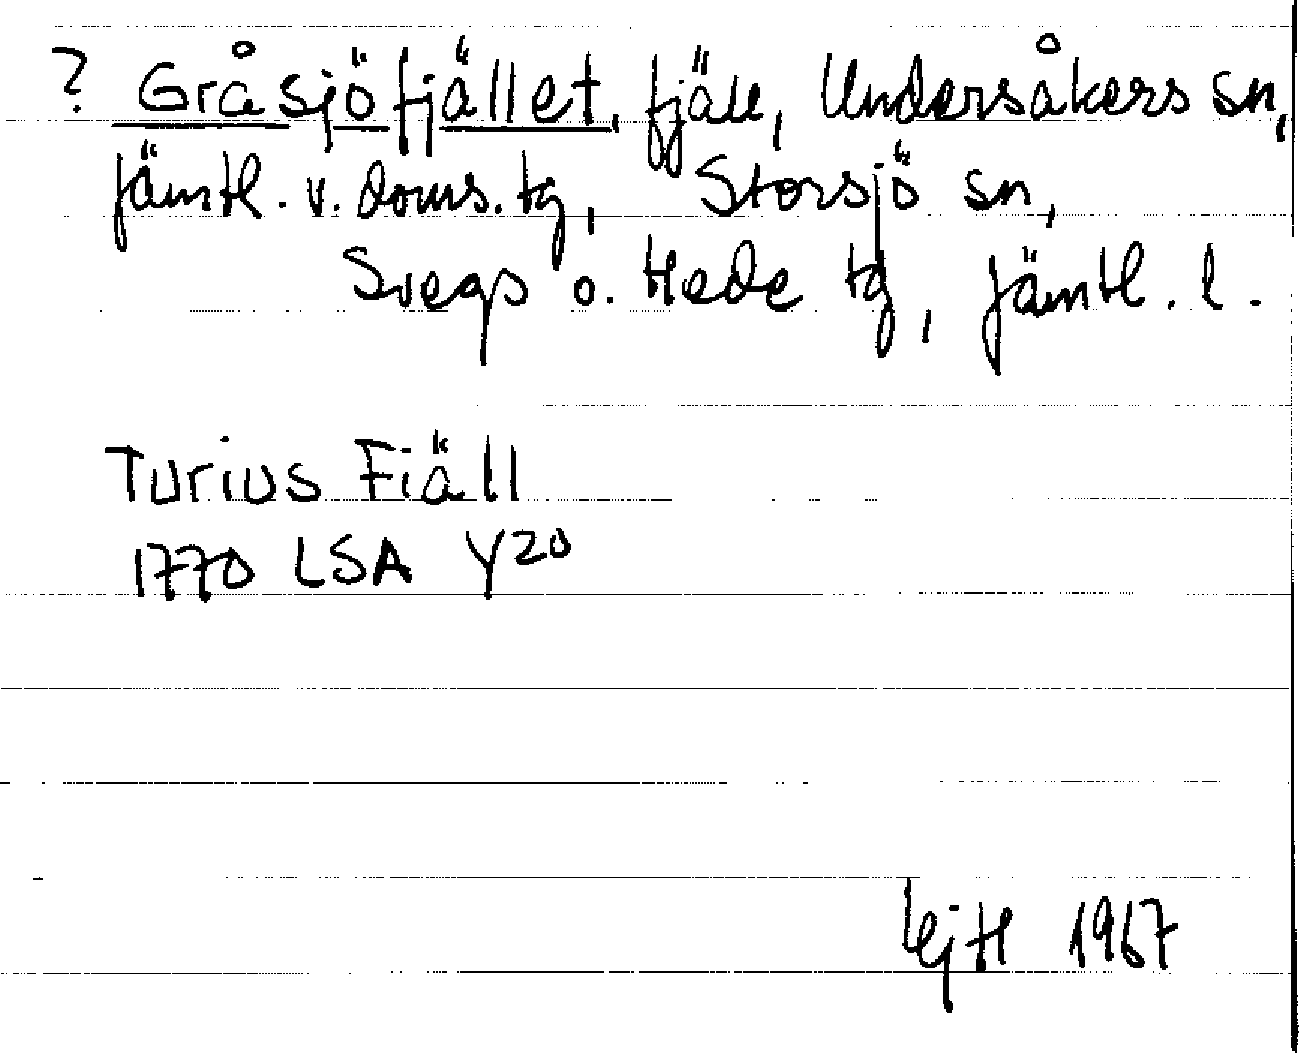 ? Gråsjöfjället, fjäll, Undersåkers sn,
Jämtl. v. doms. tg, Storsjö sn,
Svegs o. Hede tg, Jämtl. l.
Turius Fiäll
1770 LSA Y20
1967